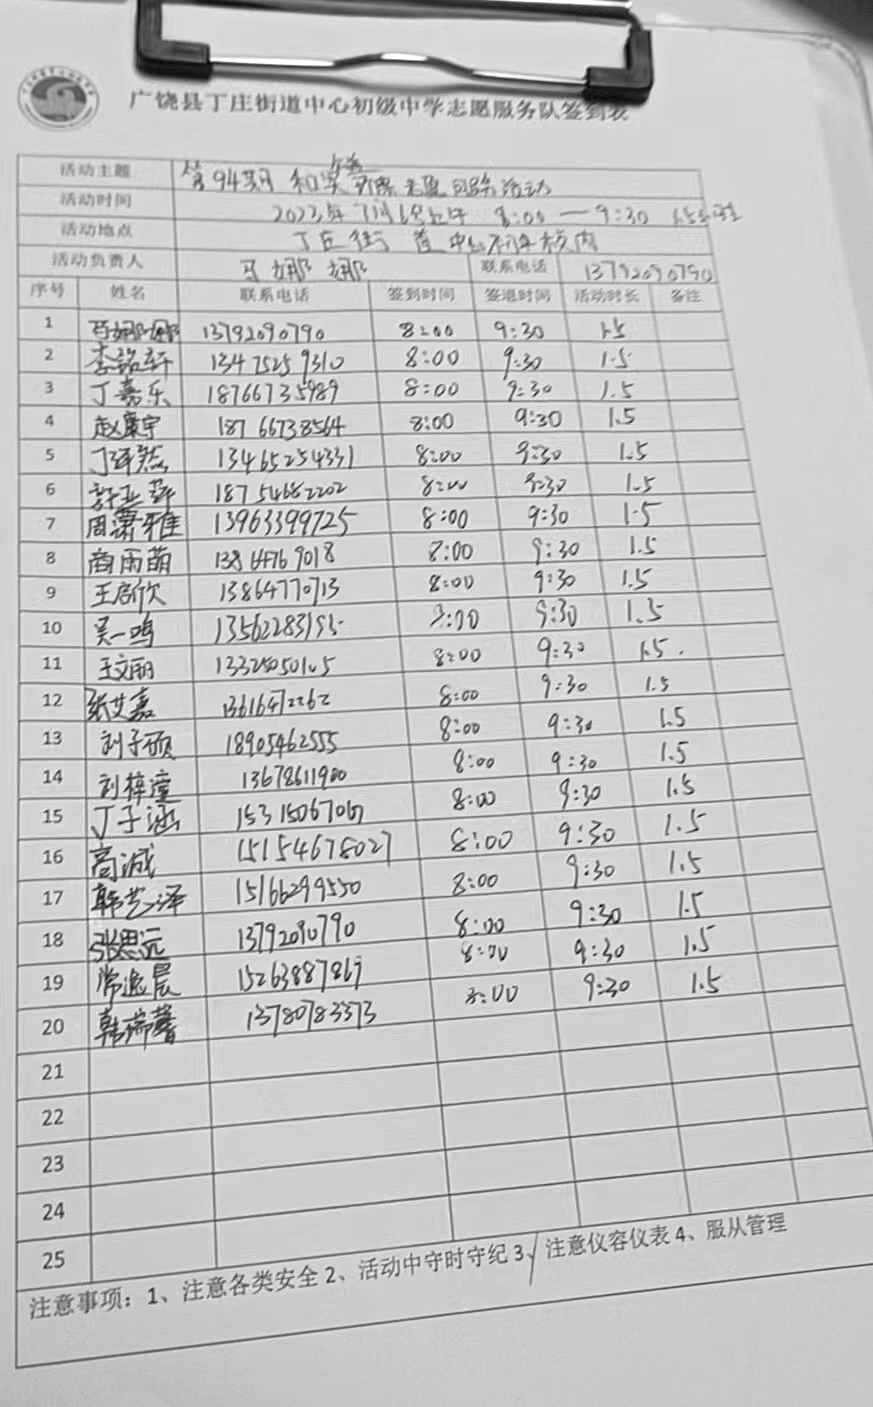 广饶县丁庄街道中心初级中学志愿服务队签到表
活动主题 第94期
活动时间 2023年7月16日上午 8:00—9:30
活动地点 丁庄街道中心 校内
活动负责人 联系电话 13792090790
序号 姓名 联系电话 签到时间 签退时间 活动时长 备注
1 13792090790 8:00 9:30 1.5
2 李铭轩 13475259310 8:00 9:30 1.5
3 丁嘉乐 18766735989 8:00 9:30 1.5
4 赵康宇 18766738564 8:00 9:30 1.5
5 13465254331 8:00 9:30 1.5
6 18754682202 8:00 9:30 1.5
7 周潇雅 13963399725 8:00 9:30 1.5
8 商雨萌 13864769018 8:00 9:30 1.5
9 王启欣 13864770713 8:00 9:30 1.5
10 吴一鸣 8:00 9:30 1.5
11 王文丽 8:00 9:30 1.5
12 张艾嘉 13616472262 8:00 9:30 1.5
13 刘子硕 18905462555 8:00 9:30 1.5
14 刘梓潼 13678611900 8:00 9:30 1.5
15 丁子涵 15315067067 8:00 9:30 1.5
16 高诚 15154678027 8:00 9:30 1.5
17 韩艺泽 15166299550 8:00 9:30 1.5
18 张思远 13792090790 8:00 9:30 1.5
19 常逸晨 15263887869 8:00 9:30 1.5
20 韩瑞馨 13780783373 8:00 9:30 1.5
21
22
23
24
25
注意事项：1、注意各类安全 2、活动中守时守纪 3、注意仪容仪表 4、服从管理